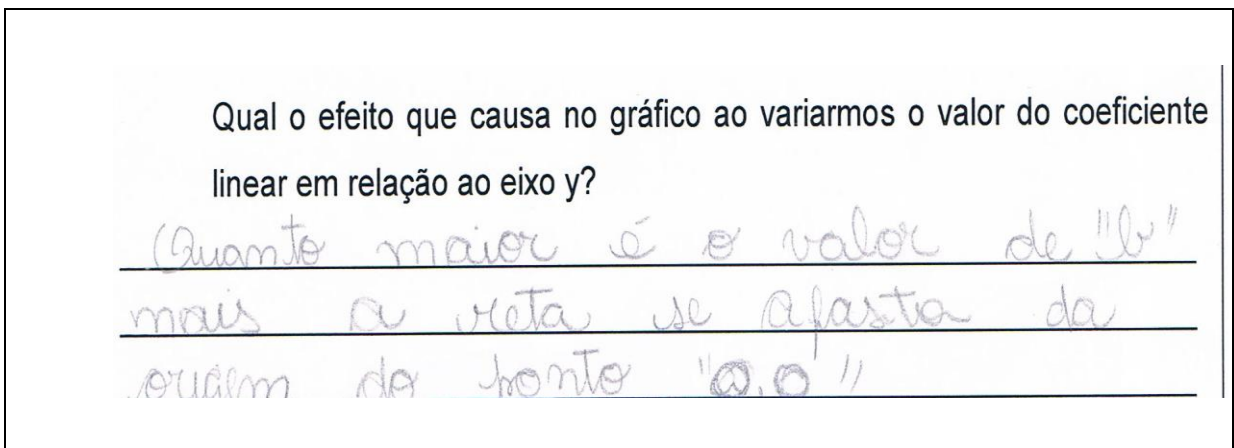 Qual o efeito que causa no gráfico ao variarmos o valor do coeficiente
linear em relação ao eixo y?
Quanto maior é o valor de "b"
mais a reta se afasta da
origem do ponto "0,0"